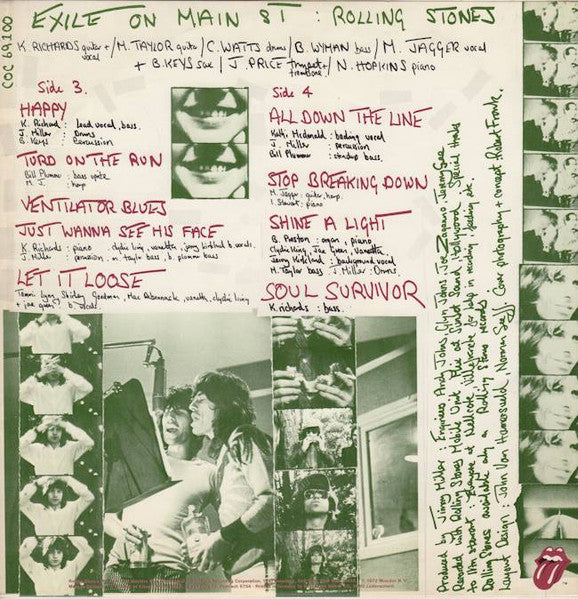 EXILE ON MAIN ST : ROLLING STONES
COC 69100
K RICHARDS guitar + / M. TAYLOR guitar / C. WATTS drums / B. WYMAN bass / M. JAGGER vocal
vocal
+ B. KEYS sax / J. PRICE trumpet + / N. HOPKINS piano
trombone
Side 3.
HAPPY
K. Richard : Lead vocal, bass.
J. Miller : Drums
B. Keys : Percussion
TURD ON THE RUN
Bill Plummer : bass
M. J. : harp
VENTILATOR BLUES
JUST WANNA SEE HIS FACE
K. Richards : piano
J. Miller : percussion, m. taylor bass, b. plummer bass
LET IT LOOSE
Tammi Lynn, Shirley Goodman, Mac Rebennack, vanetta, clydie king
+ joe green
Side 4
ALL DOWN THE LINE
Kathi Mcdonald : backing vocal
J. Miller : percussion
Bill Plummer : standup bass.
STOP BREAKING DOWN
M. Jagger : guitar, harp.
I. Stewart : piano
SHINE A LIGHT
B. Preston : organ, piano
Clydie King, Joe Green, Vanetta,
Jerry Kirkland : background vocal
M. Taylor bass J. Miller : Drums.
SOUL SURVIVOR
K. richards : bass.
Produced by Jimmy Miller : Engineers Andy Johns, Glyn Johns, Joe Zagarino, Jeremy Gee
Recorded with Rolling Stones Mobile Unit. Mixed at Sunset Sound, Hollywood. Special thanks
to
Rolling Stones available only on Rolling Stones records
Layout Design : John Van Hamersveld, Norman Seeff. Cover photography + concept Robert Frank.